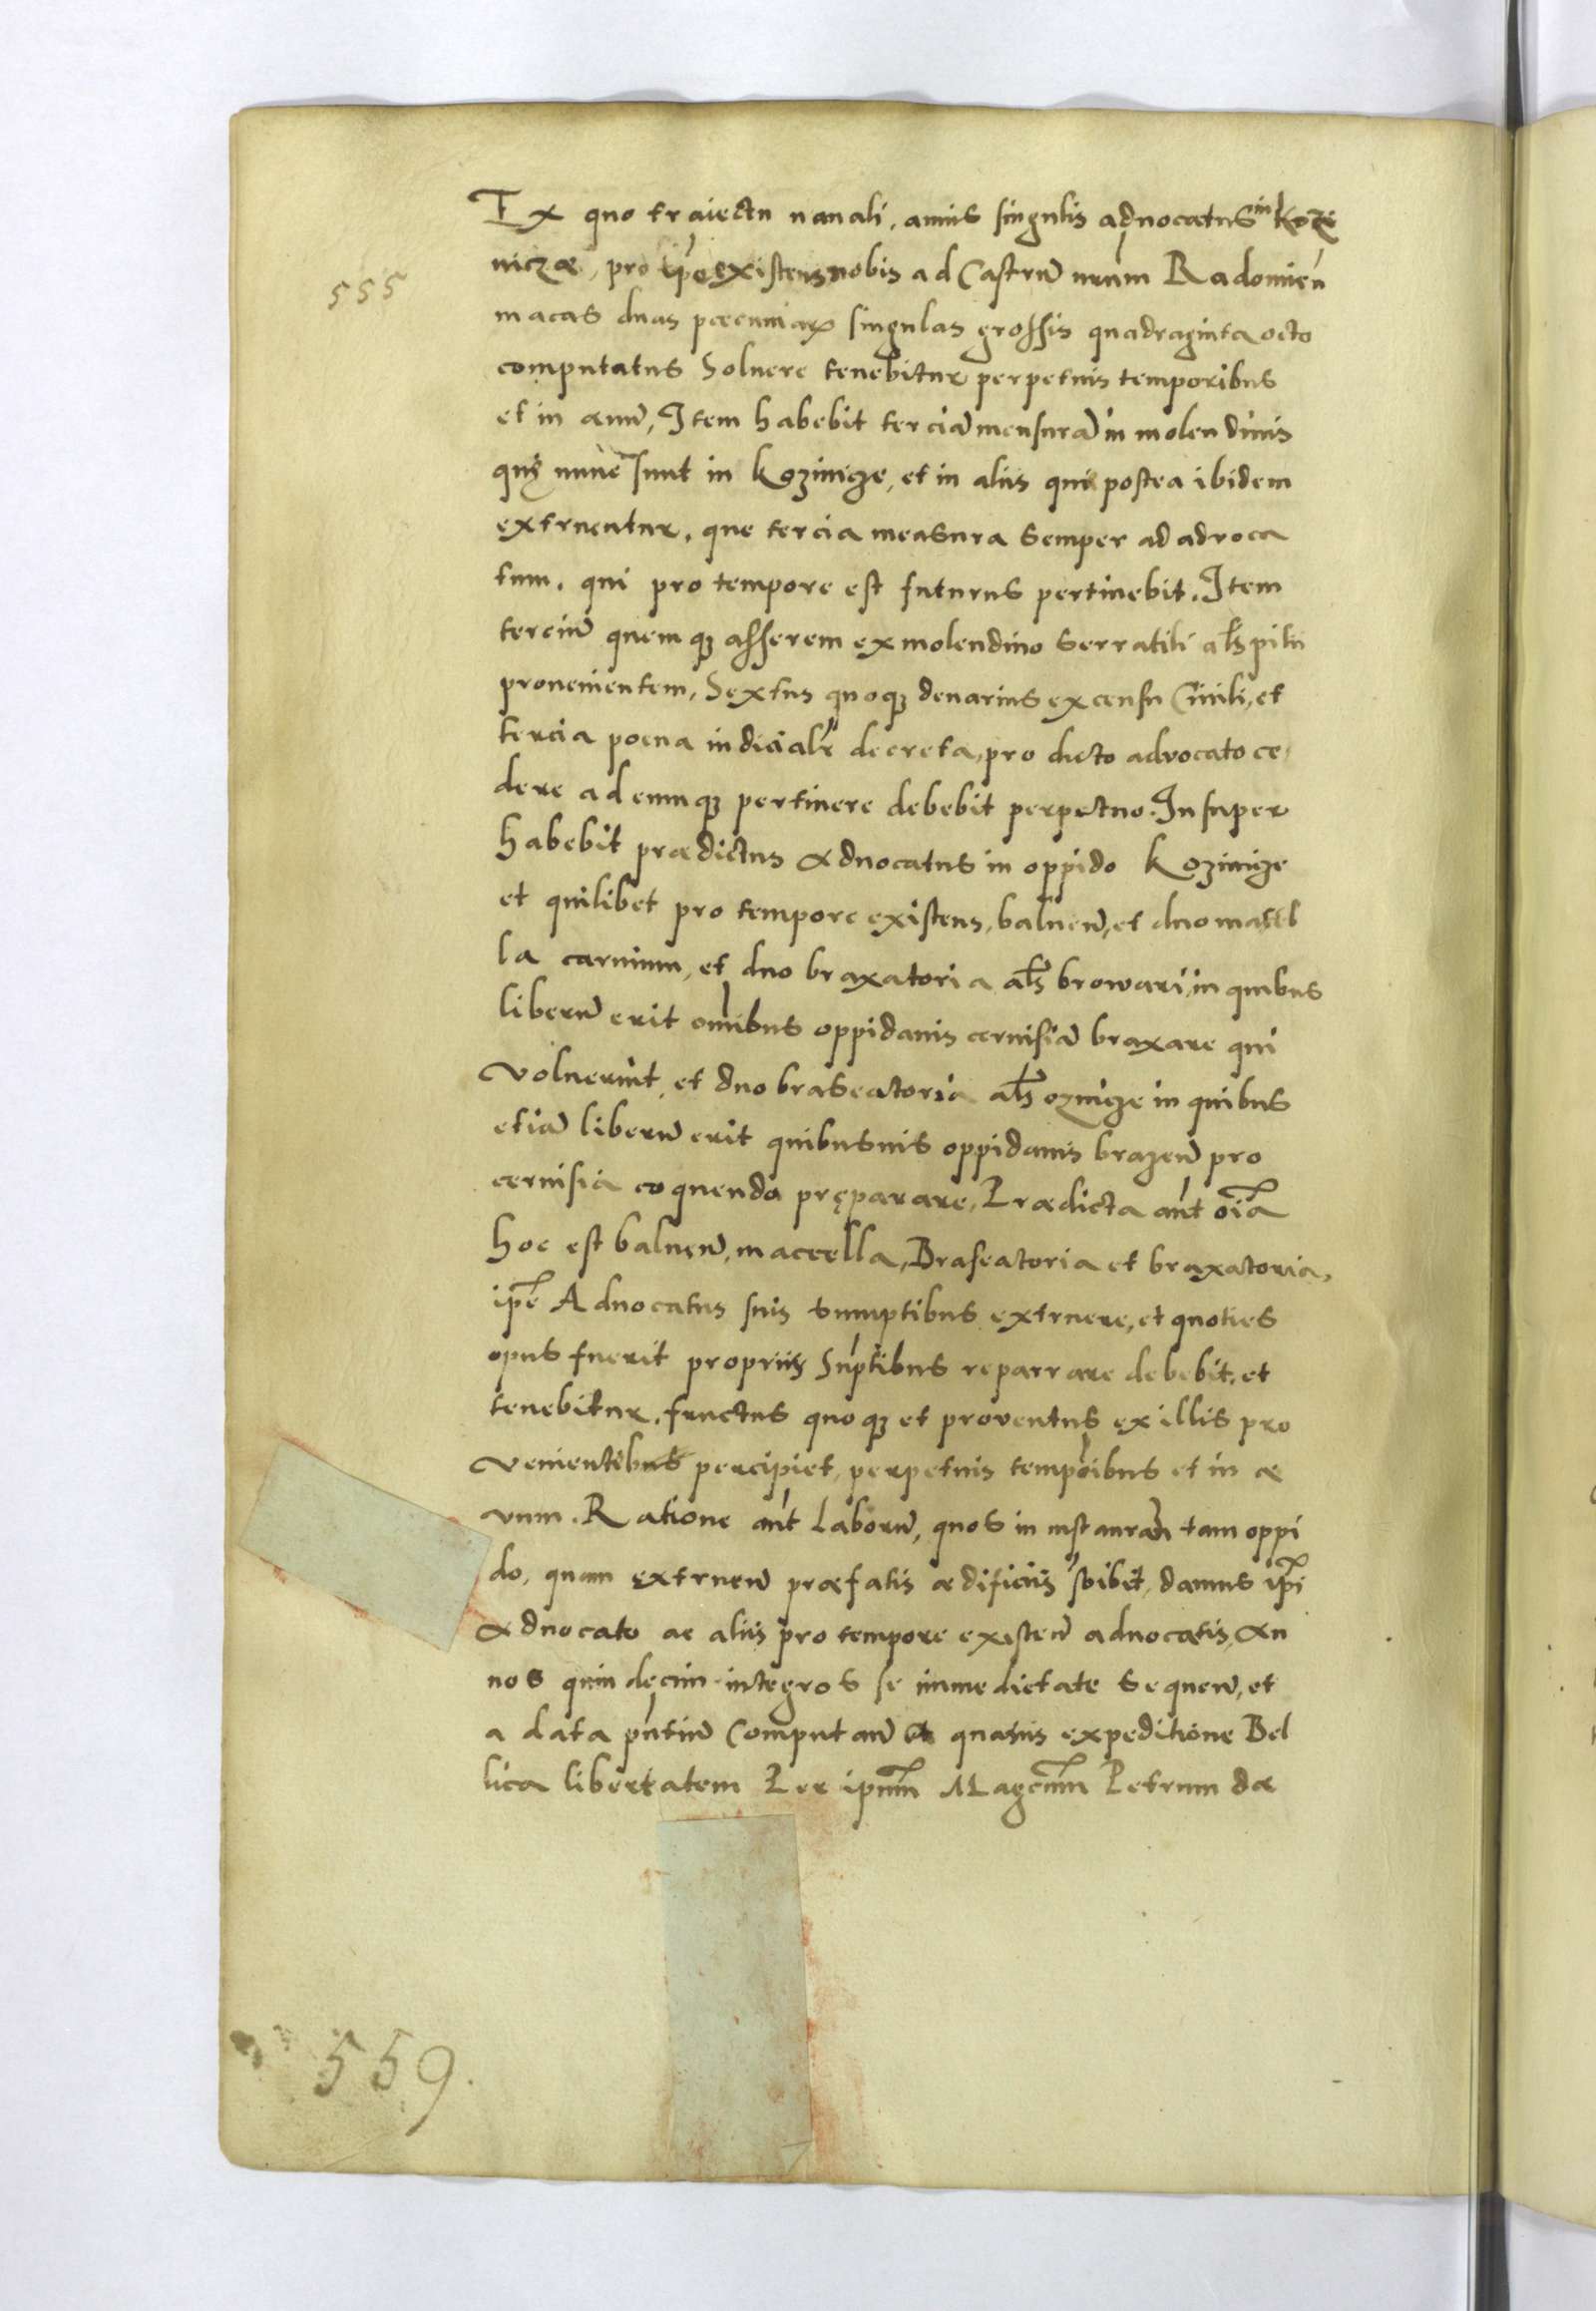 Ex quo traiectu nauali, annis singulis aduocatus in Kozi
niczæ, pro tp̄e existens nobis ad Castrum nr̄um Radomien̄
macas duas pæcuniaꝝ singulas grossis quadraginta octo
555
computatus Soluere tenebitur perpetuis temporibus
et in æuū, Item habebit terciā mensurā in molendinis
quę nunc sunt in Kozinicze, et in aliis qui postea ibidem
extruentur, que tercia measura semper ad advoca
tum, qui pro tempore est futurus pertinebit. Item
terciū quemqꝫ asserem ex molendino serratili al̄s pilu
prouenientem, Sextus quoqꝫ denarius ex censu Ciuili, et
tercia poena iudicialr̄ decreta, pro dicto advocato ce
dere ad eumqꝫ pertinere debebit perpetuo. Insuper
habebit prædictus aduocatus in oppido Kozinicze
et quilibet pro tempore existens, balneū, et duo maccel
la carnium, et duo braxatoria al̄s browari, in quibus
liberū erit om̄ibus oppidanis ceruisiā braxare qui
voluerint, et duo braseatoria al̄s oznicze in quibus
etiā liberū erit quibusuis oppidanis brazeū pro
ceruisia coquenda pręparare, Prædicta aut̄ oi͞a
hoc est balneū, maccella, Braseatoria et braxatoria,
ip̄e Aduocatus suis sumptibus extruere, et quoties
opus fuerit propriis Sūptibus reparrare debebit, et
tenebitur, fructus quoqꝫ et proventus ex illis pro
venientibus percipiet, perpetuis tempor̄ibus et in æ
vum. Ratione aut̄ laborū, quos in instauran̄ tam oppi
do, quam extruen̄ præfatis ædificiis sbībit, damus ip̄i
aduocato ac aliis pro tempore existen̄ aduocatis, an
nos quindecim integros se immedietate sequen̄, et
a data pn̄tiū Computan̄ a quatuis expeditione Bel
lica libertatem Per ipsum̄ Magcum̄ Petrum dæ
559.